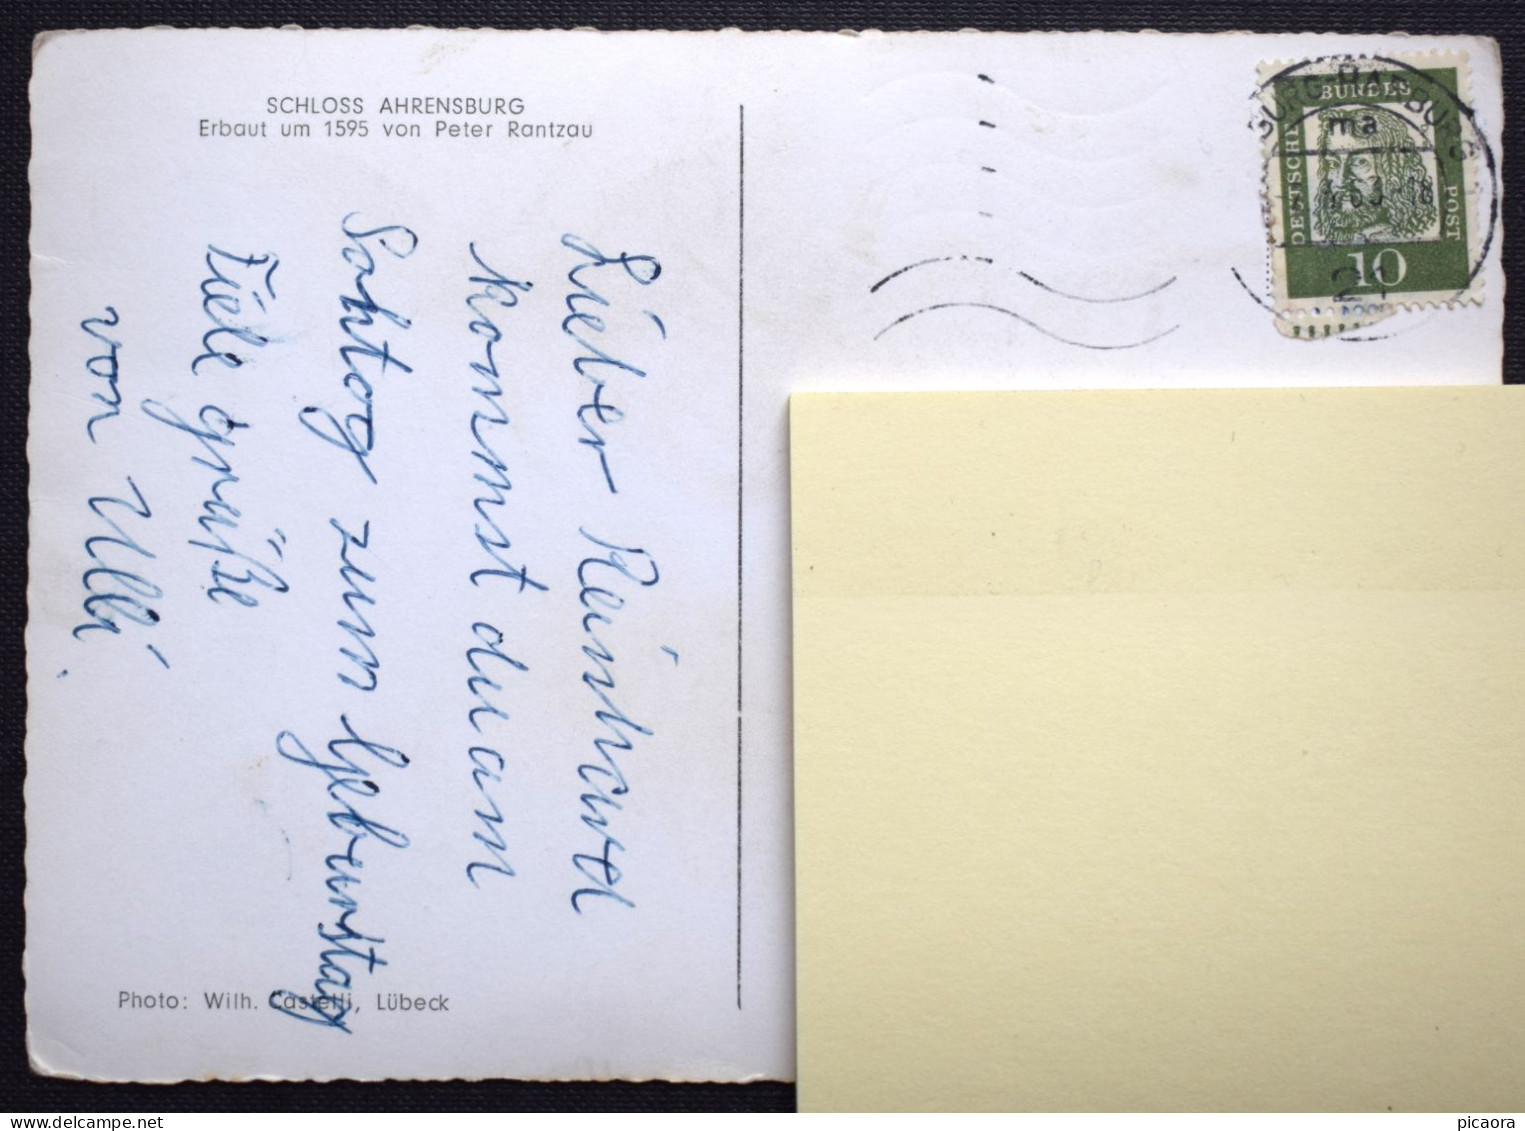 SCHLOSS AHRENSBURG
Erbaut um 1595 von Peter Rantzau
Lieber Reinhard
kommst du am
Sohtog zum Geburtstag
Viele grüße
von Ulli.
Photo: Wilh. Castelli, Lübeck
BURG-HARBURG
ma
63-18
21
DEUTSCHE
BUNDES
POST
10
picaora